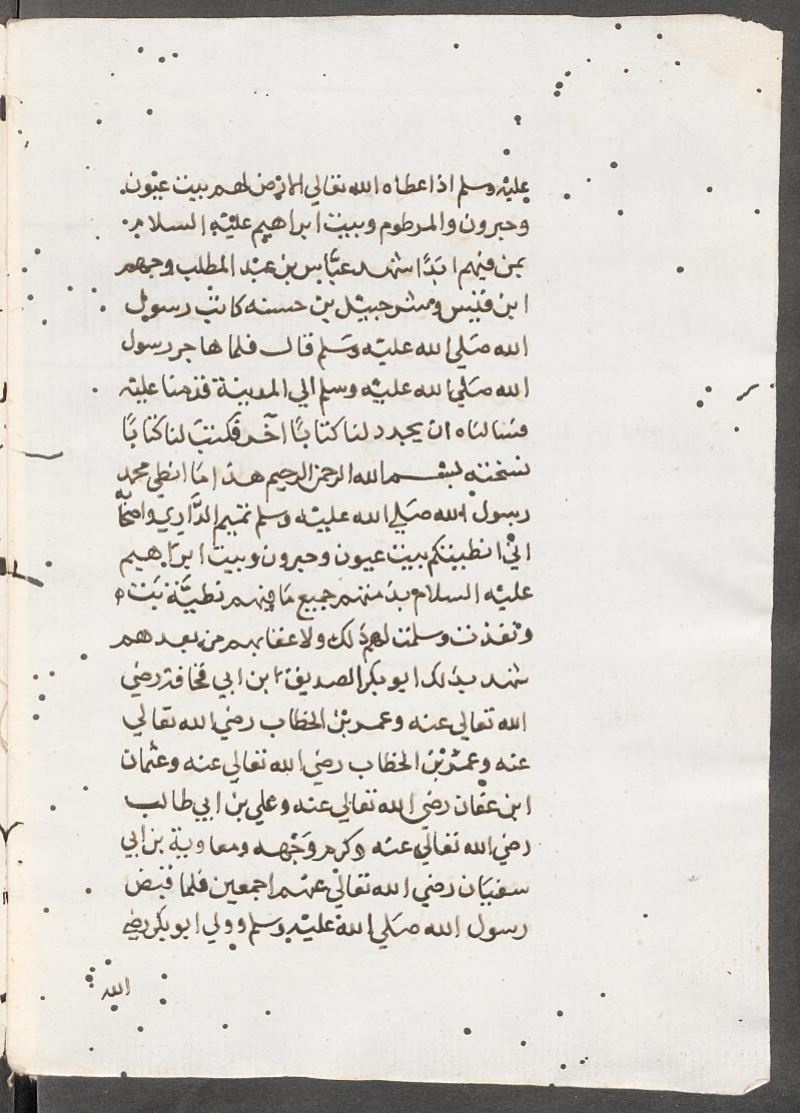 عليه وسلم اذا اعطاه الله تعالي الارض لهم بيت عيون
وحبرون والمرطوم وبيت ابراهيم عليه السلام
بمن فيهم ابدًا شهد عبّاس بن عبد المطلب وجهم
ابن قيس وشرحبيل بن حسنه كاتب رسول
الله صَلي الله عليه وسَلم قال فلما هاجر رسول
الله صَلي الله عليه وسلم الي المدينة قدمنا عليه
فسالناه ان يجدد لنا كتابًا آخر فكتبَ لنا كتابًا
نسخته بسم الله الرحمن الرحيم هذا مَا انطي محمد
رسول الله صَلي الله عليه وسلم تميم الدَّاري واصحابه
اني انطيتكم بيت عيون وحبرون وبيت ابراهيم
عليه السلام بذمتهم جميع مَا فيهم نطيَّة بَت
ونفذت وسلمت لهم ذلك ولاعقابهم من بعدهم
شهد بذلك ابو بكر الصديق ابن ابي قحافة رضي
الله تعالي عنه وعمر بن الخطاب رضي الله تعالي
عنه وعمر بن الخطاب رضي الله تعالي عنه وعثمان
ابن عفان رضي الله تعالي عنه وعلي بن ابي طالب
رضي الله تعالي عنه وكرم وَجْهه ومعاوية بن ابي
سفيَان رضي الله تعالي عنهم اجمعين فلما قبض
رسول الله صَلي الله عليه وسلم وولي ابو بكر رضي
الله